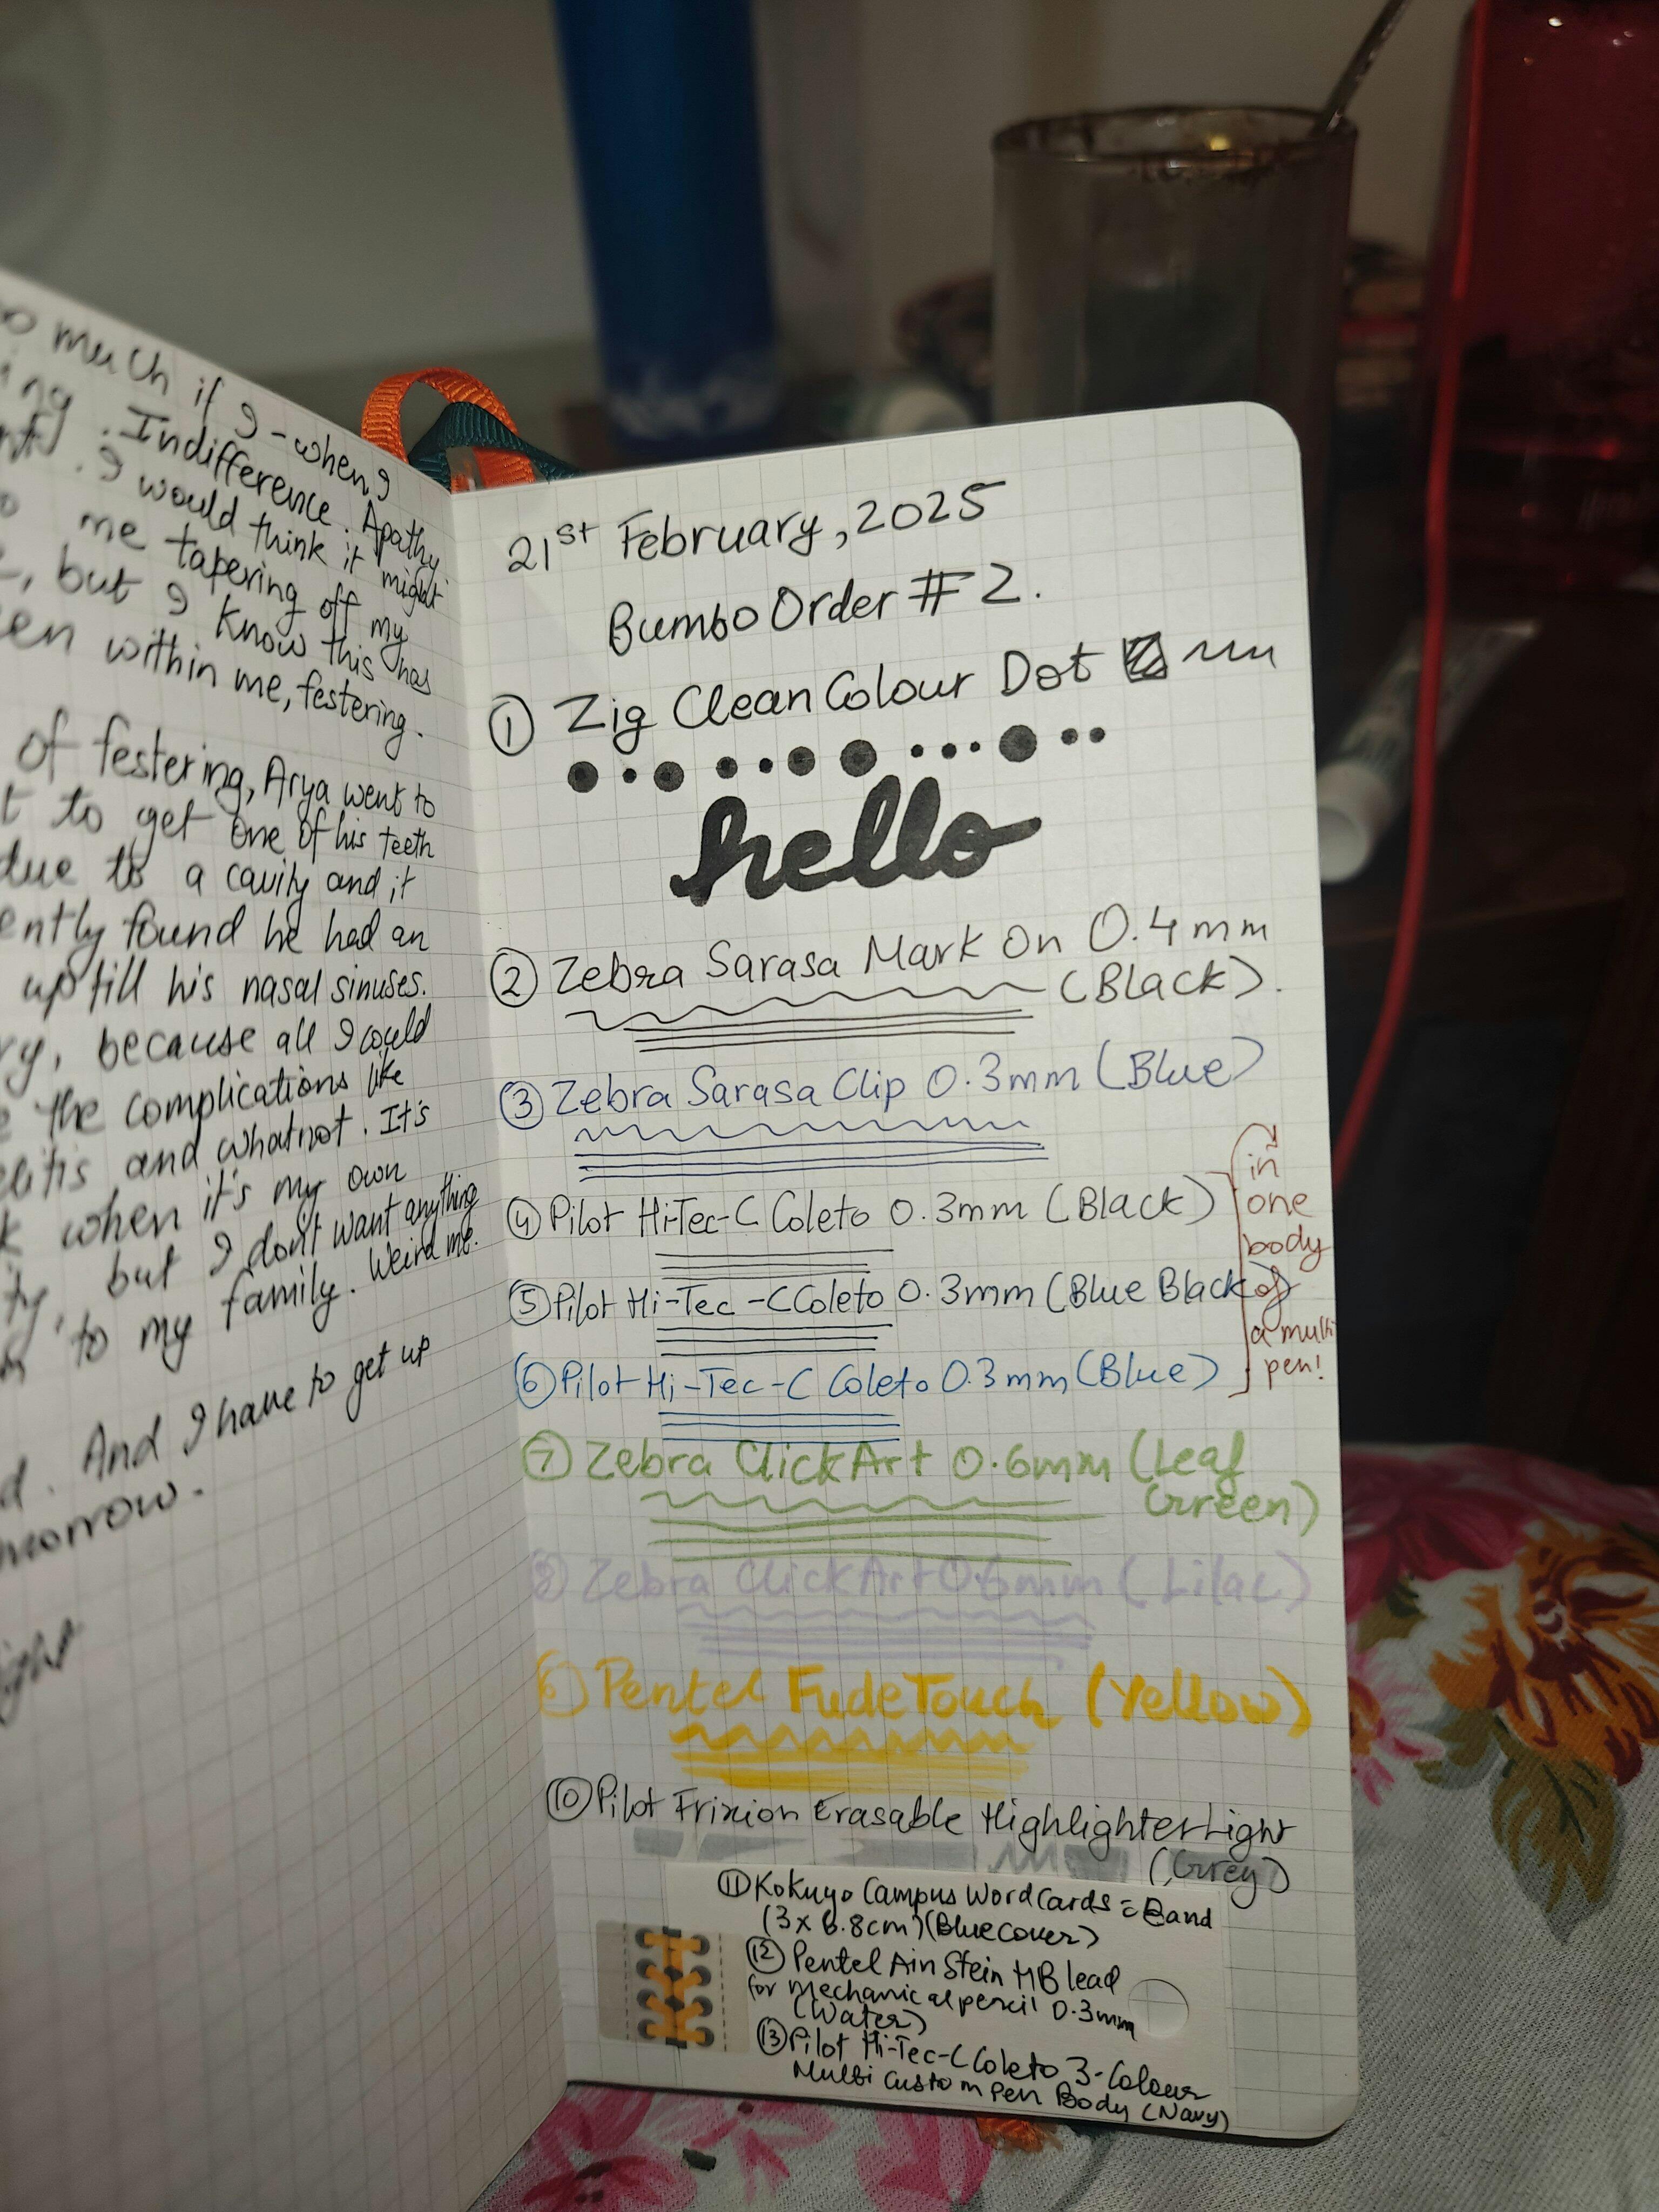 much if I - when I
. Indifference. Apathy
. I would think it might
me tapering off my
, but I know this has
within me, festering.
of festering, Arya went to
to get one of his teeth
due to a cavity and it
found he had an
up till his nasal sinuses.
, because all I could
the complications like
and whatnot. It's
when it's my own
, but I don't want anything
to my family. Weird me.
. And I have to get up
21st February, 2025
Bumbo Order #2.
① Zig Clean Colour Dot
hello
② Zebra Sarasa Mark On 0.4mm
(Black).
③ Zebra Sarasa Clip 0.3mm (Blue)
④ Pilot Hi-Tec-C Coleto 0.3mm (Black)
⑤ Pilot Hi-Tec-C Coleto 0.3mm (Blue Black)
⑥ Pilot Hi-Tec-C Coleto 0.3mm (Blue)
in
one
body
of
a multi
pen!
⑦ Zebra ClickArt 0.6mm (Leaf
Green)
⑧ Zebra ClickArt 0.6mm (Lilac)
Pentel Fude Touch (Yellow)
⑩ Pilot Frixion Erasable Highlighter Light
(Grey)
⑪ Kokuyo Campus Word Cards = Band
(3 x 6.8cm) (Blue cover)
⑫ Pentel Ain Stein HB lead
for mechanical pencil 0.3mm
(Water)
⑬ Pilot Hi-Tec-C Coleto 3-Colour
Multi Custom Pen Body (Navy)